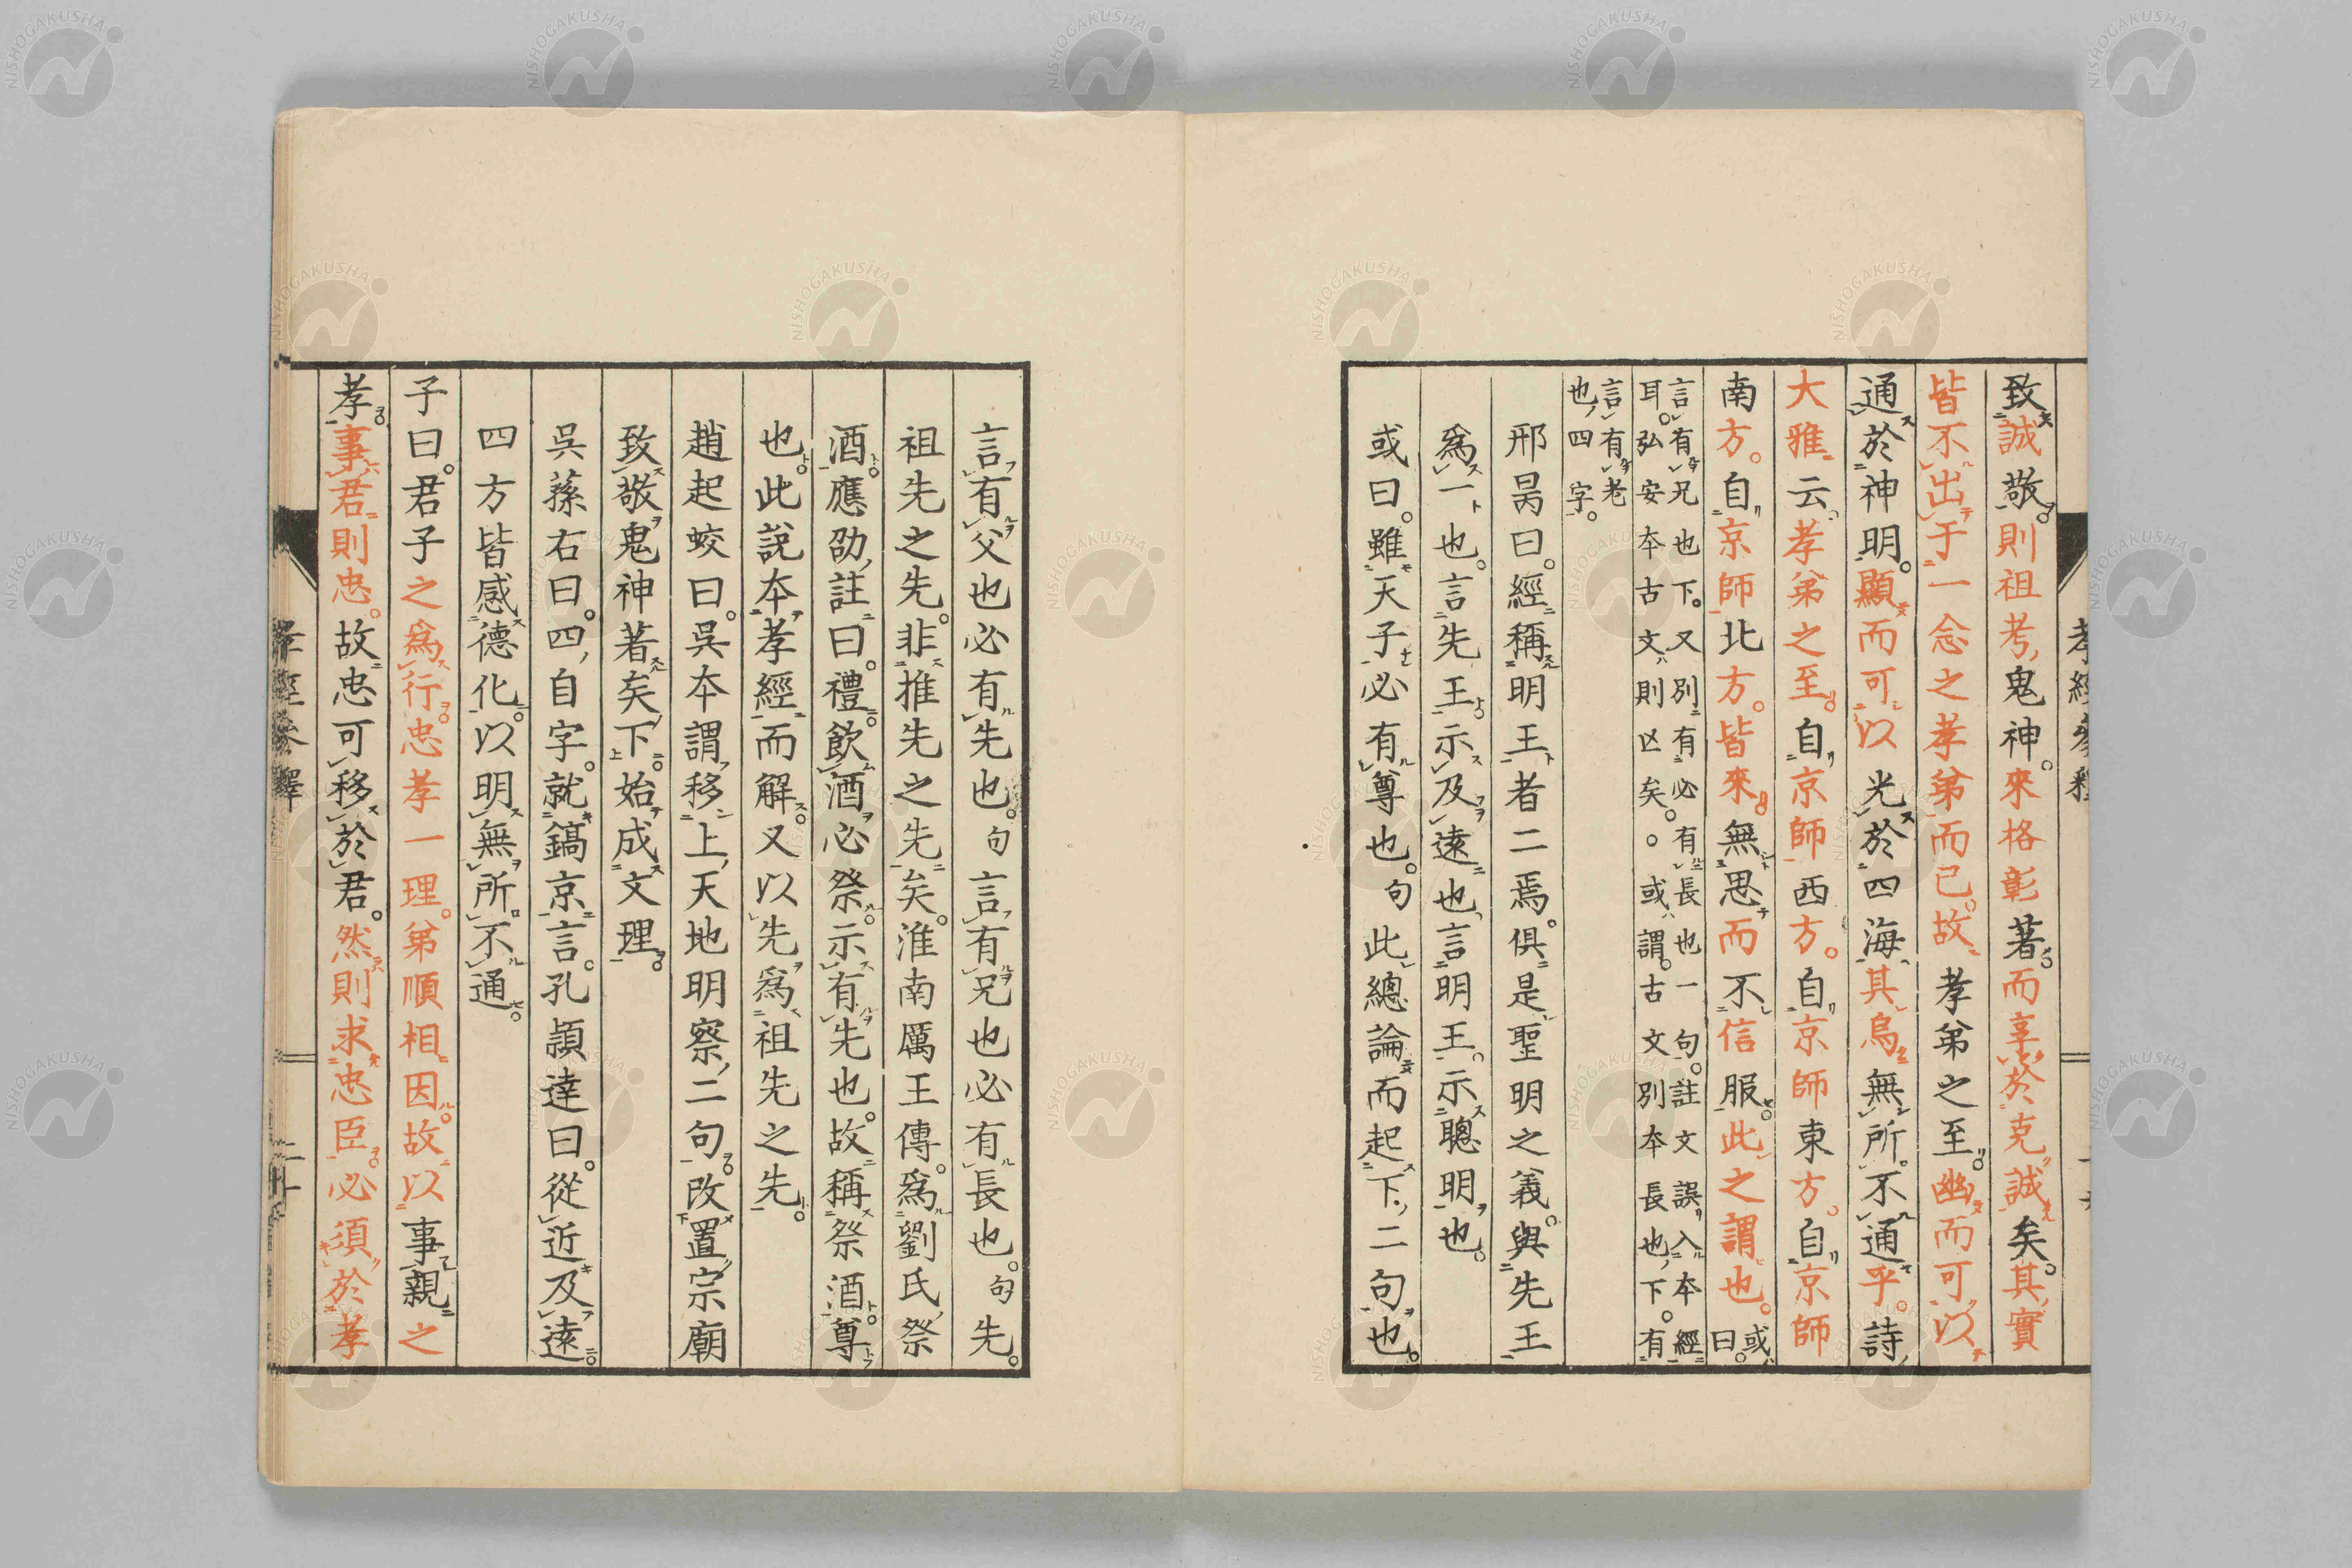 致誠敬則祖考鬼神來格彰著而享於克誠矣其實
皆不出于一念之孝弟而已故孝弟之至幽而可以
通於神明顯而可以光於四海其烏無所不通乎詩
大雅云孝弟之至自京師西方自京師東方自京師
南方自京師北方皆來無思而不信服此之謂也或曰
言有兄也下又別有必有長也一句註文誤入本經
耳弘安本古文則亡矣。或謂古文別本長也下有
言有老
也四字
邢昺曰經稱明王者二焉俱是聖明之義與先王
爲一也言先王示及遠也言明王示聰明也
或曰雖天子必有尊也句此總論而起下二句也
言有父也必有先也句言有兄也必有長也句先
祖先之先非推先之先矣淮南厲王傳爲劉氏祭
酒應劭註曰禮飲酒必祭示有先也故稱祭酒尊
也此說本孝經而解又以先爲祖先之先
趙起蛟曰吳本謂移上天地明察二句改置宗廟
致敬鬼神著矣下始成文理
吳蓀右曰四自字就鎬京言孔穎達曰從近及遠
四方皆感德化以明無所不通
子曰君子之爲行忠孝一理弟順相因故以事親之
孝事君則忠故忠可移於君然則求忠臣必須於孝
孝經參釋